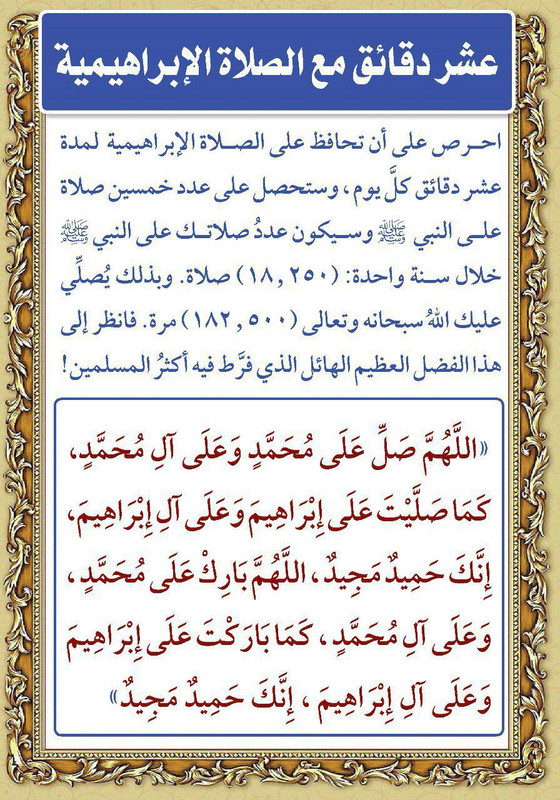 عشر دقائق مع الصلاة الإبراهيمية
احـرص على أن تحافظ على الصـلاة الإبراهيمية لمدة
عشر دقائق كلَّ يوم، وستحصل على عدد خمسين صلاة
علـى النبي ﷺ وسـيكون عددُ صلاتـك على النبي ﷺ
خلال سـنة واحدة: (١٨,٢٥٠) صلاة. وبذلك يُصلِّي
عليك اللهُ سبحانه وتعالى (١٨٢,٥٠٠) مرة. فانظر إلى
هذا الفضل العظيم الهائل الذي فرَّط فيه أكثرُ المسلمين!
«اللَّهُمَّ صَلِّ عَلَى مُحَمَّدٍ وَعَلَى آلِ مُحَمَّدٍ،
كَمَا صَلَّيْتَ عَلَى إِبْرَاهِيمَ وَعَلَى آلِ إِبْرَاهِيمَ،
إِنَّكَ حَمِيدٌ مَجِيدٌ، اللَّهُمَّ بَارِكْ عَلَى مُحَمَّدٍ،
وَعَلَى آلِ مُحَمَّدٍ، كَمَا بَارَكْتَ عَلَى إِبْرَاهِيمَ
وَعَلَى آلِ إِبْرَاهِيمَ، إِنَّكَ حَمِيدٌ مَجِيدٌ»